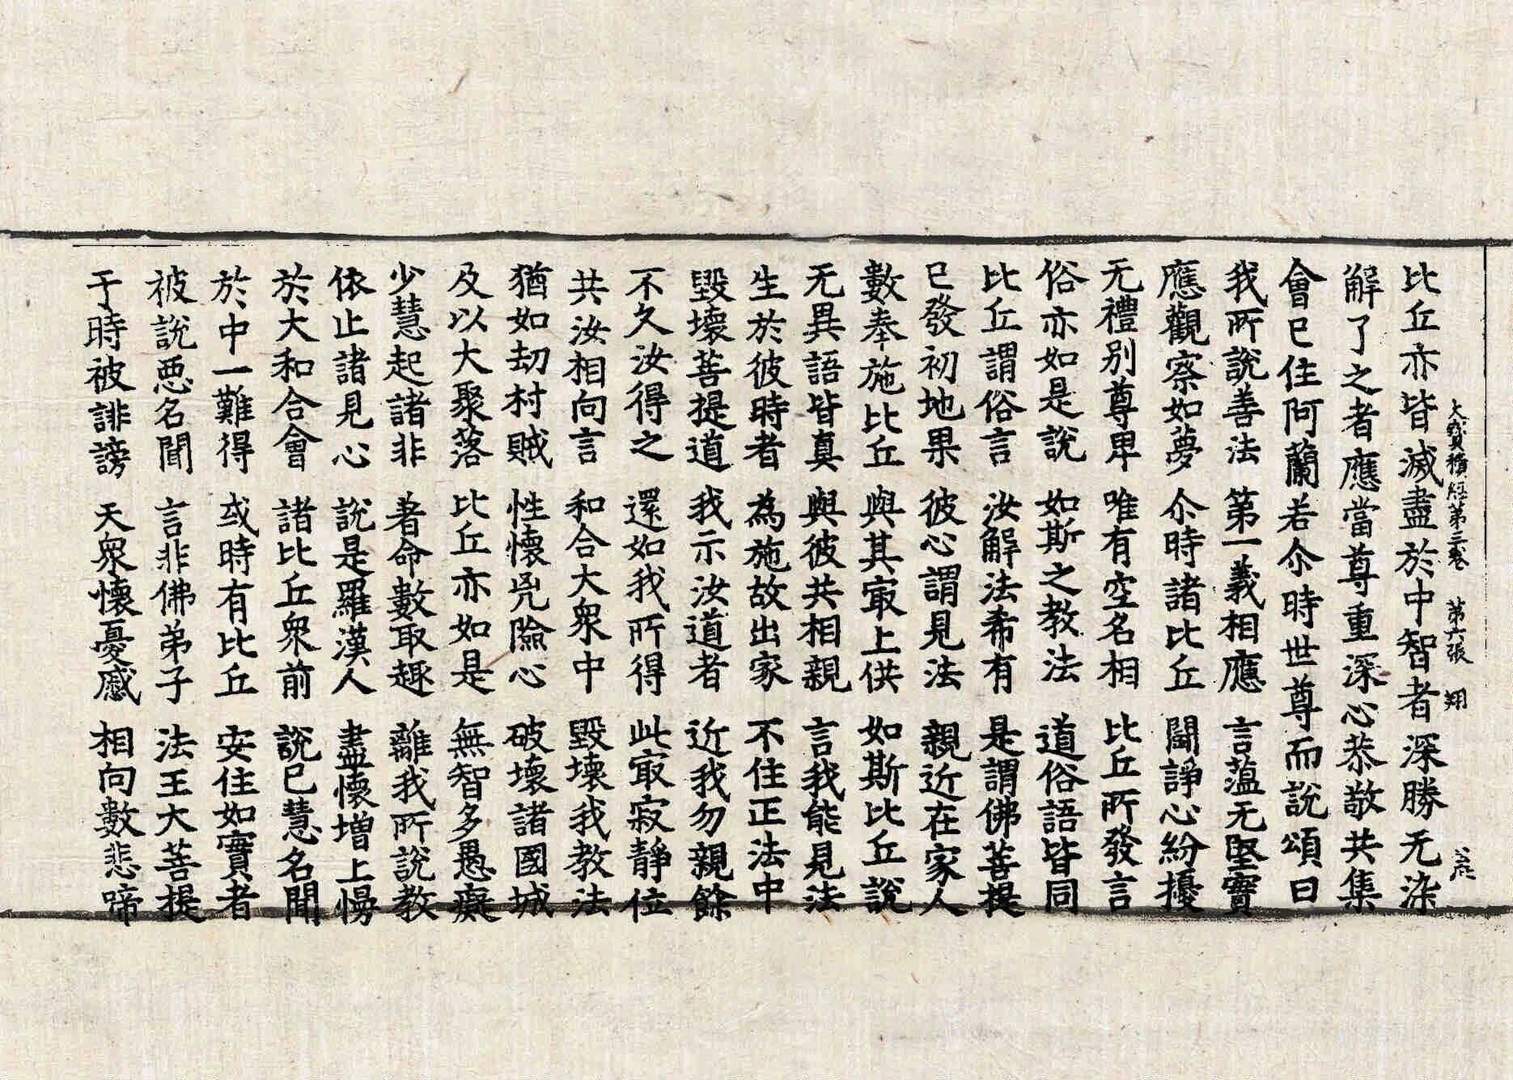 大寶積經第三卷　第六張　翔
比丘亦皆滅盡於中智者深勝无染
解了之者應當尊重深心恭敬共集
會已住阿蘭若尒時世尊而說頌曰
我所說善法　第一義相應　言薀无堅實
應觀察如夢　尒時諸比丘　鬪諍心紛擾
无禮別尊卑　唯有空名相　比丘所發言
俗亦如是說　如斯之教法　道俗語皆同
比丘謂俗言　汝解法希有　是謂佛菩提
已發初地果　彼心謂見法　親近在家人
數奉施比丘　與其㝡上供　如斯比丘說
无異語皆真　與彼共相親　言我能見法
生於彼時者　為施故出家　不住正法中
毀壞菩提道　我示汝道者　近我勿親餘
不久汝得之　還如我所得　此㝡寂靜位
共汝相向言　和合大衆中　毀壞我教法
猶如劫村賊　性懷兇險心　破壞諸國城
及以大聚落　比丘亦如是　無智多愚癡
少慧起諸非　著命數取趣　雖我所說教
依止諸見心　說是羅漢人　盡懷增上慢
於大和合會　諸比丘衆前　說已慧名聞
於中一難得　或時有比丘　安住如實者
被說惡名聞　言非佛弟子　法王大菩提
于時被誹謗　天衆懷憂慼　相向數悲啼